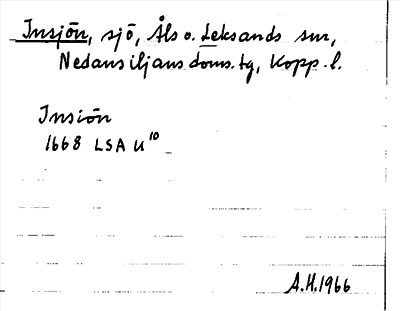 Insjön, sjö, Åls o. Leksands snr,
Nedansiljans doms.tg, Kopp.l.
Insiön
1668 LSA U10
A.H.1966